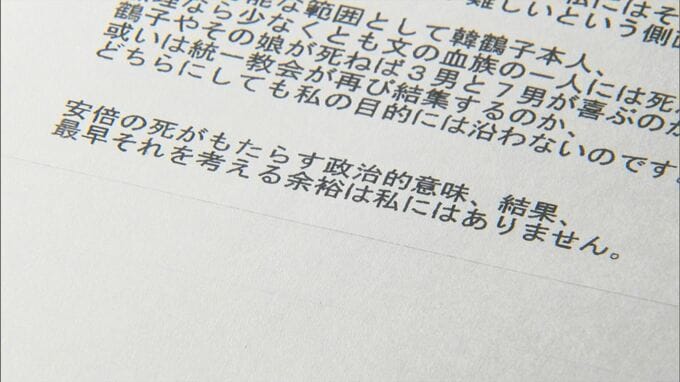 難しいという側面
能な範囲として韓鶴子本人、
理なら少なくとも文の血族の一人には死ん
鶴子やその娘が死ねば3男と7男が喜ぶのか
或いは統一教会が再び結集するのか、
どちらにしても私の目的には沿わないのです。
安倍の死がもたらす政治的意味、結果、
最早それを考える余裕は私にはありません。